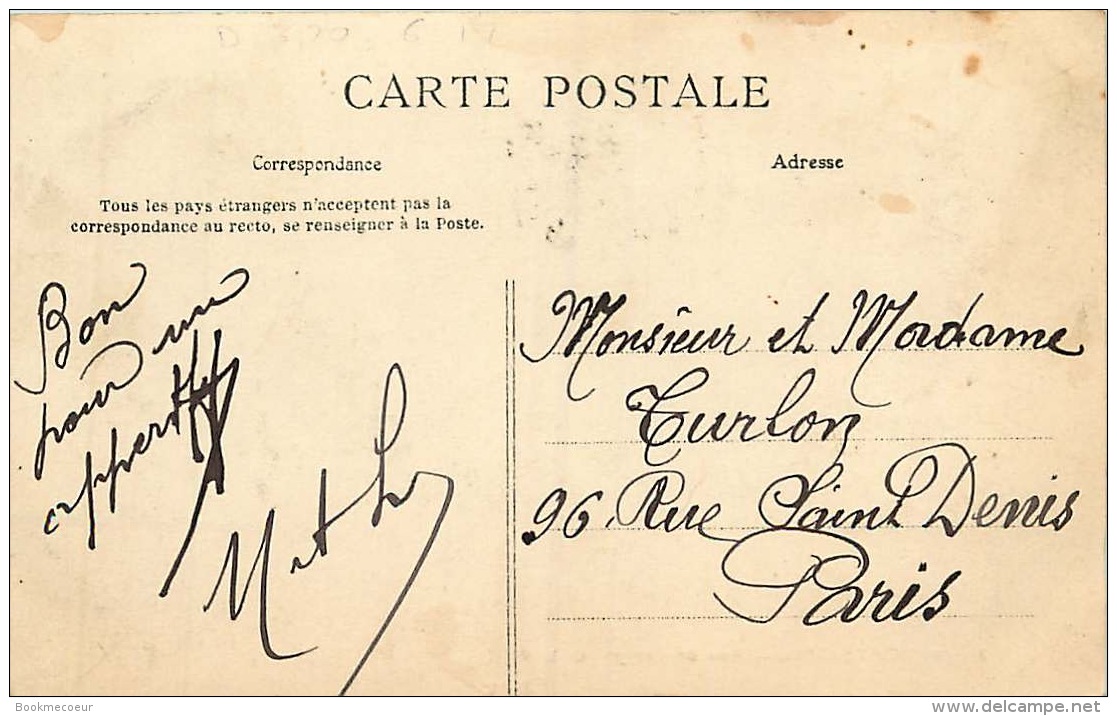 CARTE POSTALE
Correspondance
Adresse
Tous les pays étrangers n'acceptent pas la
correspondance au recto, se renseigner à la Poste.
Bon
pour un
Monsieur et Madame
Turlon
96 Rue Saint Denis
Paris
Bookmecoeur
www.delcampe.net